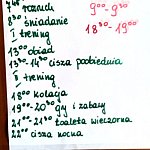 7⁴⁵ rozruch
8³⁰ śniadanie
I trening
13⁰⁰ obiad
13³⁰-14³⁰ cisza poobiednia
I trening
18⁰⁰ kolacja
19⁰⁰-20³⁰ gry i zabawy
21⁰⁰-21³⁰ toaleta wieczorna
22⁰⁰ cisza nocna
9⁰⁰-9³⁰
18³⁰-19⁰⁰